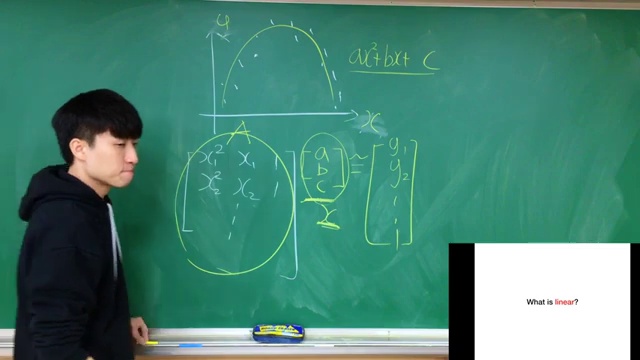 y
ax²+bx+ c
x
A
x₁² x₁ 1
x₂² x₂ 1
a
b
c
≈
y₁
y₂
x
What is linear?